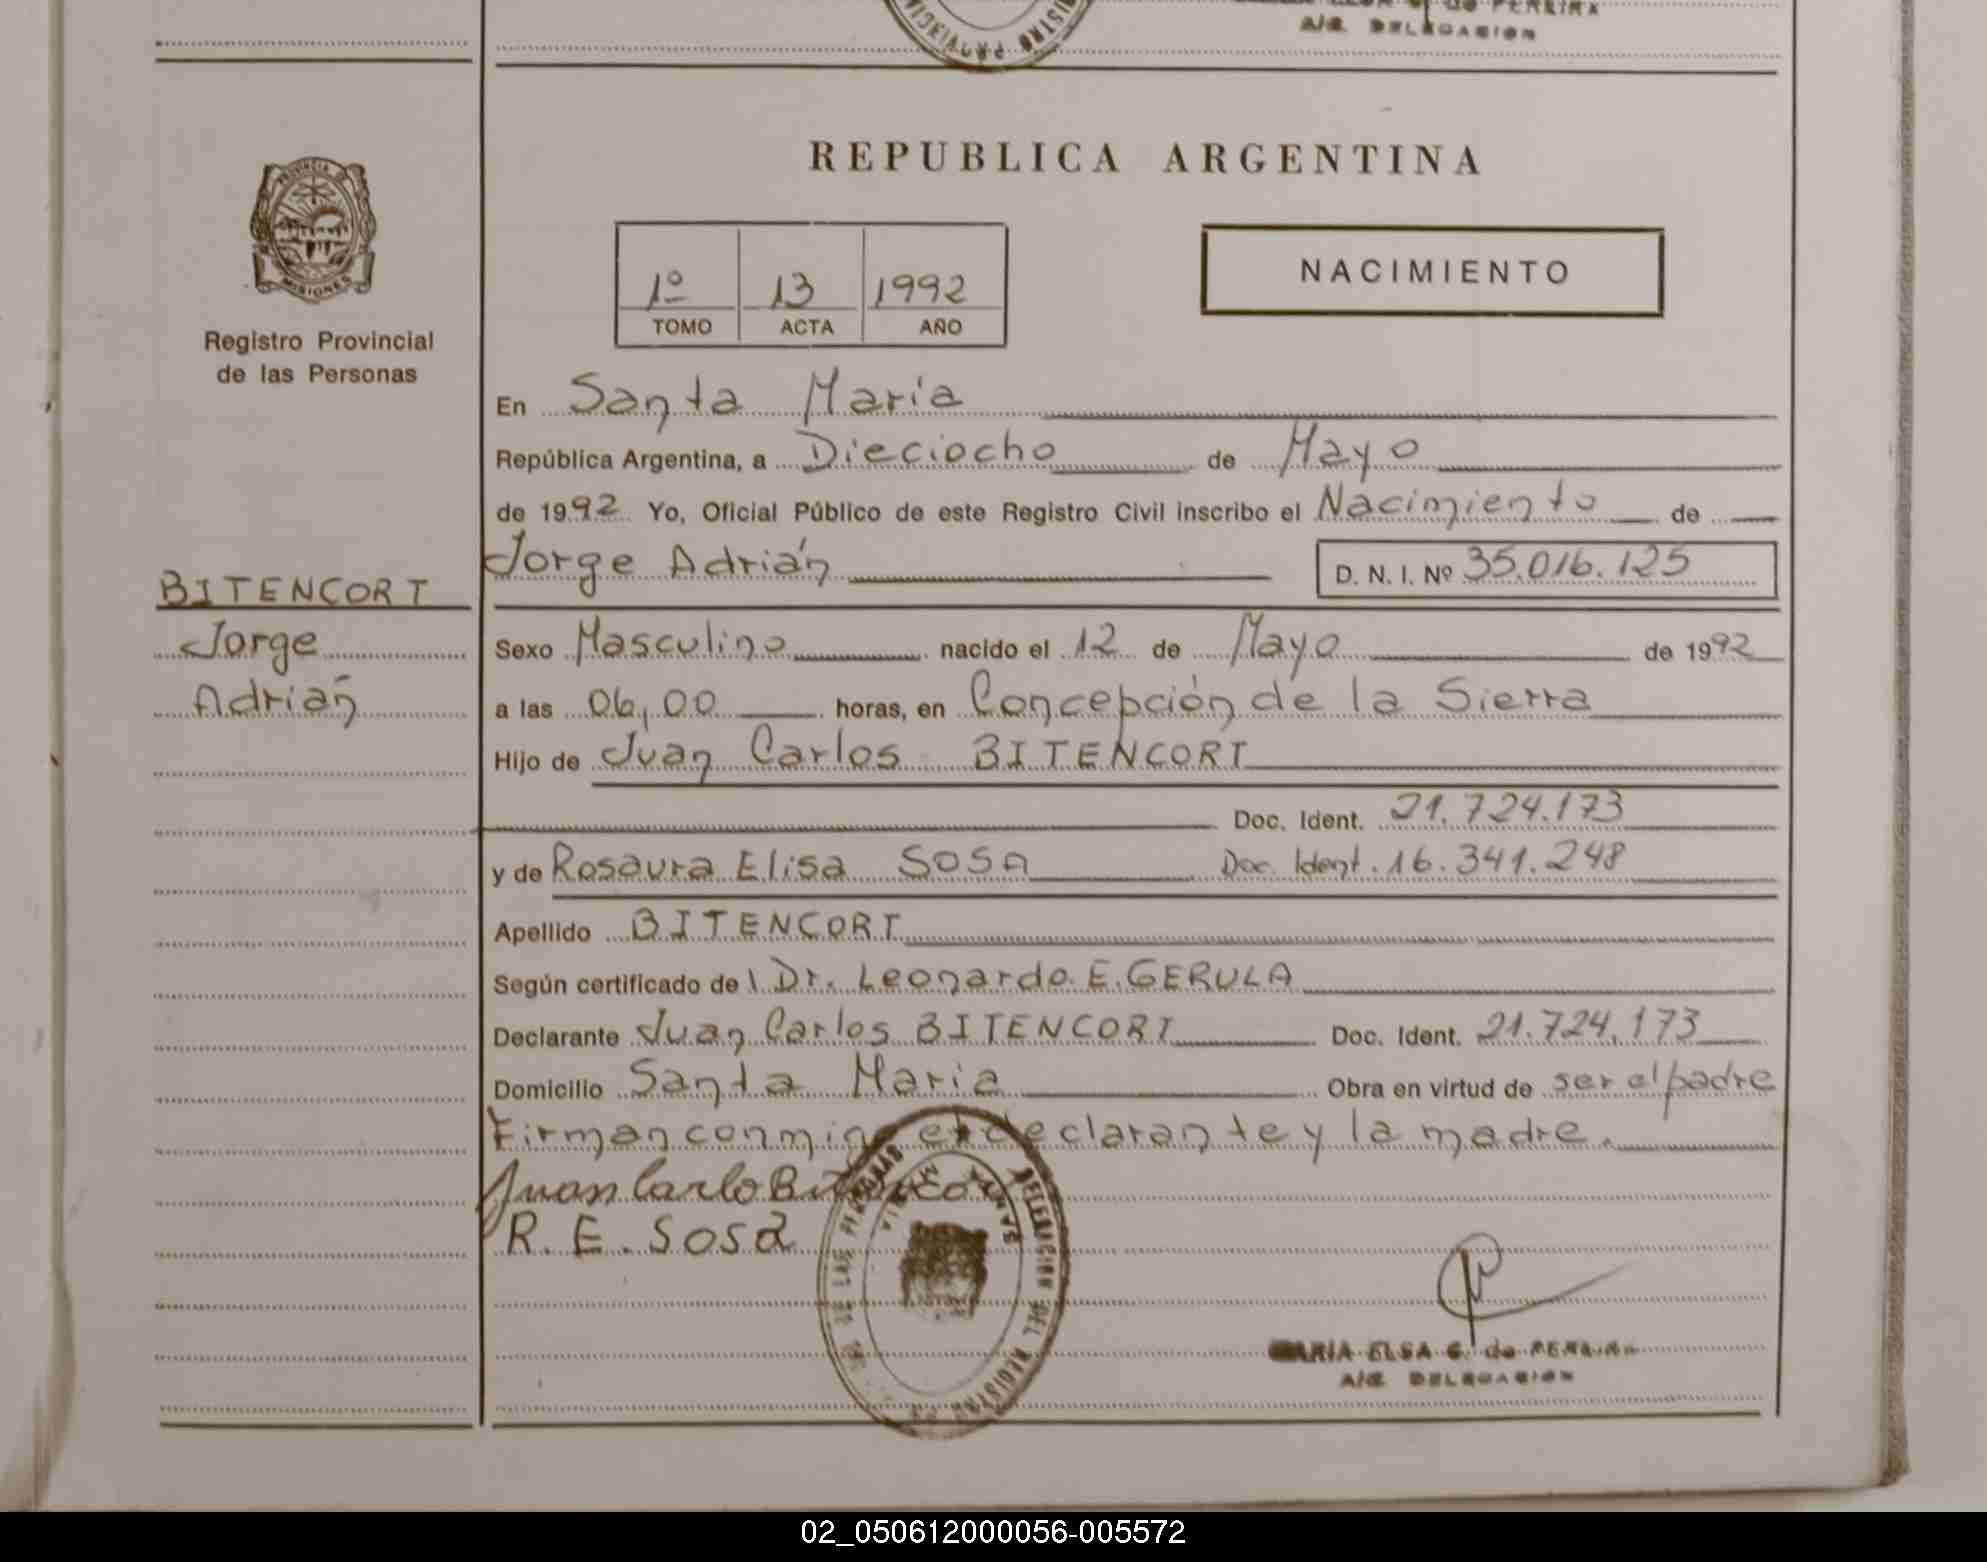 de PEREIRA
A/C. DELEGACION
REPUBLICA ARGENTINA
PROVINCIA DE
MISIONES
Registro Provincial
de las Personas
1º 13 1992
TOMO ACTA AÑO
NACIMIENTO
En Santa María
República Argentina, a Dieciocho de Mayo
de 1992 Yo, Oficial Público de este Registro Civil inscribo el Nacimiento de
Jorge Adrián D. N. I. Nº 35.016.125
BITENCORT
Jorge
Adrián
Sexo Masculino nacido el 12 de Mayo de 1992
a las 06,00 horas, en Concepción de la Sierra
Hijo de Juan Carlos BITENCORT
Doc. Ident. 21.724.173
y de Rosaura Elisa SOSA Doc. Ident. 16.341.248
Apellido BITENCORT
Según certificado de l Dr. Leonardo E. GERULA
Declarante Juan Carlos BITENCORT Doc. Ident. 21.724.173
Domicilio Santa María Obra en virtud de ser el padre
Firman conmigo el declarante y la madre.
Juan Carlo
R. E. Sosa
DELEGACION DEL REGISTRO DE LAS PERSONAS
SANTA MARIA
MARIA ELSA G. de PEREIRA
A/C. DELEGACION
02_050612000056-005572